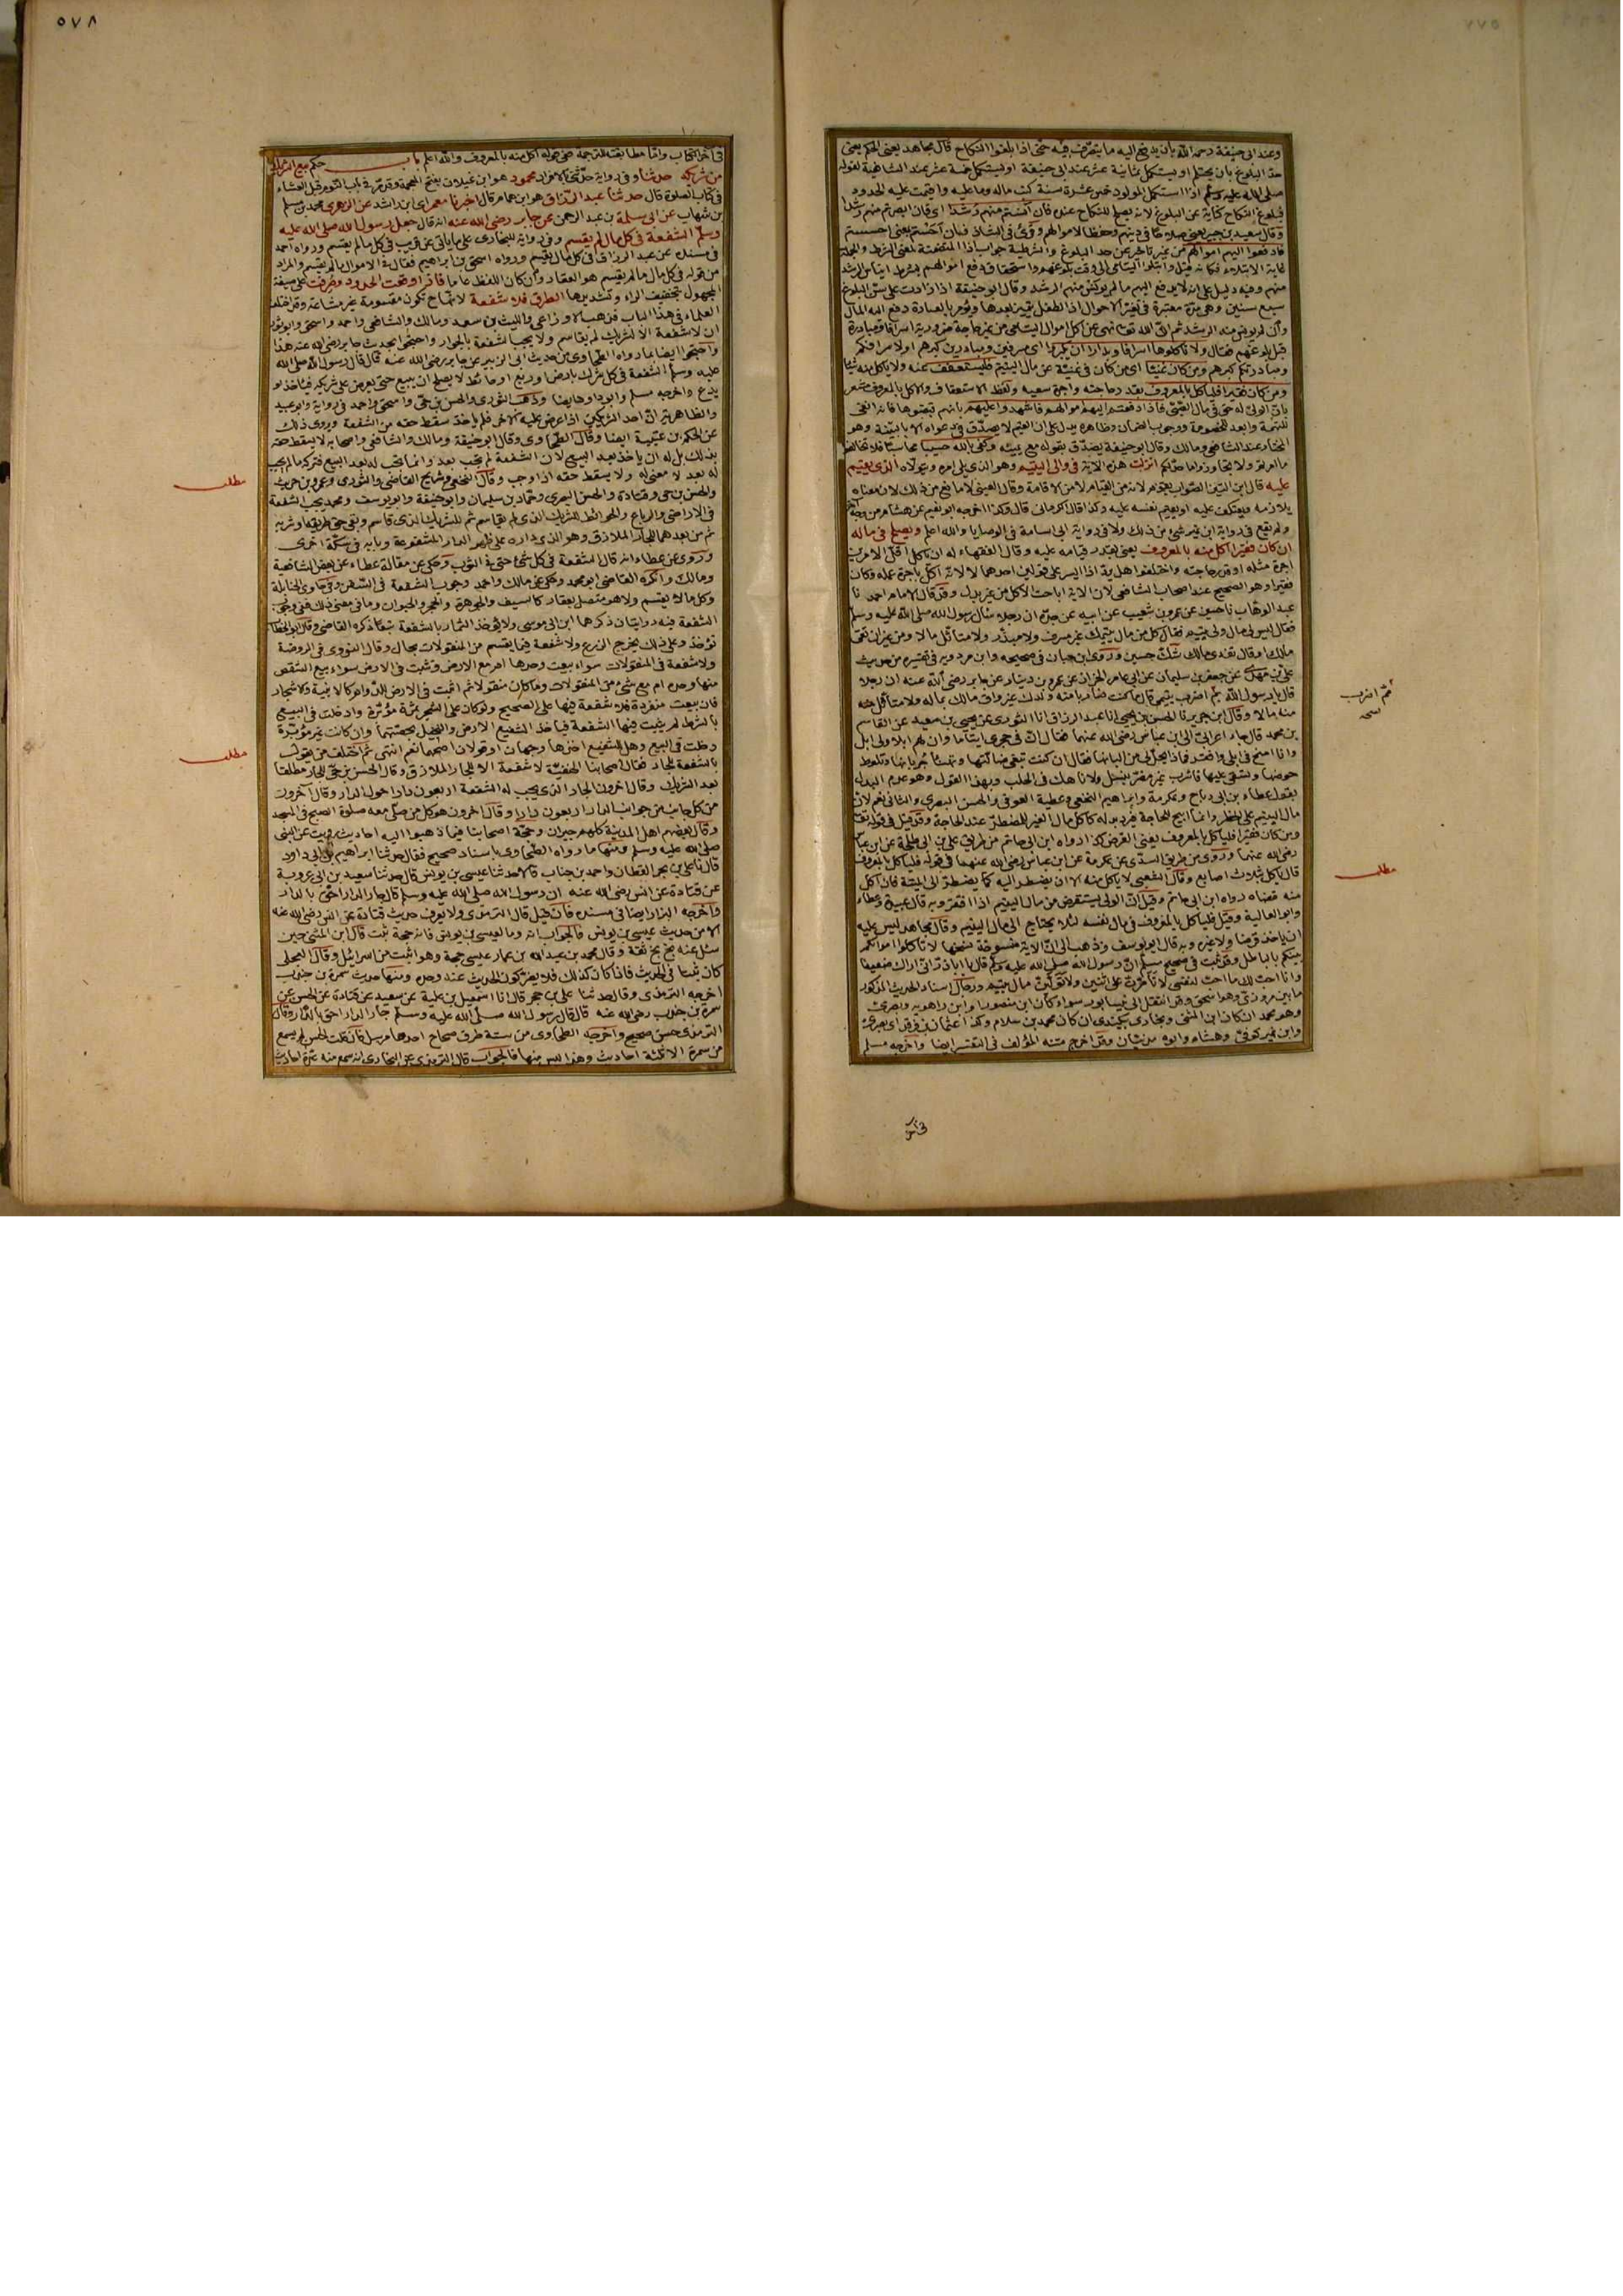 وعند ابى حنيفة رحمه الله بان يدفع اليه ما يتصرف فيه حتى اذا بلغوا النكاح قال مجاهد يعنى الحلم يعنى
حد البلوغ بان يحتلم او يستكمل ثمانية عشر عند ابى حنيفة او يستكمل خمسة عشر عند الشافعية لقوله
صلى الله عليه وسلم اذا استكمل المولود خمس عشرة سنة كتب ماله وما عليه واقيمت عليه الحدود
فبلوغ النكاح كناية عن البلوغ لانه يصلح للنكاح عنده فان آنستم منهم رشدا اى فان ابصرتم منهم رشدا
وقال سعيد بن جبير يعنى صلاحا فى دينهم وحفظا لاموالهم وقرئ فى الشاذ فان احستم يعنى احسستم
فادفعوا اليهم اموالهم من غير تأخير عن حد البلوغ
منهم وفيه دليل على انه لا يدفع اليهم ما لم يونس منهم الرشد وقال ابو حنيفة اذا زادت على سن البلوغ
سبع سنين وهى مدة معتبرة فى تغير الاحوال اذ الطفل يميز بعدها ويؤمر بالعبادة دفع اليه المال
وان لم يونس منه الرشد ثم ان الله تعالى نهى عن اكل اموال اليتامى من غير حاجة ضرورية اسرافا ومبادرة
قبل بلوغهم فقال ولا تأكلوها اسرافا وبدارا ان يكبروا اى مسرفين ومبادرين كبرهم او لاسرافكم
ومبادرتكم كبرهم ومن كان غنيا اى من كان فى غنية عن مال اليتيم فليستعفف عنه ولا يأكل منه شيئا
ومن كان فقيرا فليأكل بالمعروف بقدر حاجته واجرة سعيه ولفظ الاستعفاف والاكل بالمعروف مشعر
بان الولى له حق فى مال الصبى فاذا دفعتم اليهم اموالهم فاشهدوا عليهم بانهم قبضوها فانه انفى
للتهمة وابعد للخصومة ووجوب الضمان وظاهره يدل على ان القيم لا يصدق فى دعواه الا بالبينة وهو
المختار عند الشافعى ومالك وقال ابو حنيفة يصدق بقوله مع يمينه وكفى بالله حسيبا محاسبا فلا تخالفوا
ما امرتم ولا تجاوزوا ما حد لكم انزلت هذه الآية فى والى اليتيم وهو الذى يلى امره ويتولاه الذى يقيم
عليه قال ابن التين الصواب يقوم لانه من القيام لا من الاقامة وقال العينى لا مانع من ذلك لان معناه
يلازمه ويعتكف عليه او يقيم نفسه عليه وكذا قال الكرمانى قال وكذا اخرجه ابو نعيم عن هشام من وجه آخر
ولم يقع فى رواية ابن نمير شئ من ذلك ولا فى رواية ابى اسامة فى الوصايا والله اعلم ويصلح فى ماله
ان كان فقيرا اكل منه بالمعروف يعنى بقدر قيامه عليه وقال الفقهاء له ان يأكل اقل الامرين
اجرة مثله او قدر حاجته واختلفوا هل يرد اذا ايسر على قولين احدهما لا لانه اكل باجرة عمله وكان
فقيرا وهو الصحيح عند اصحاب الشافعى لان الآية اباحت الاكل من غير بدل وقد قال الامام احمد نا
عبد الوهاب نا حسين عن عمرو بن شعيب عن ابيه عن جده ان رجلا سأل رسول الله صلى الله عليه وسلم
فقال ليس لى مال ولى يتيم فقال كل من مال يتيمك غير مسرف ولا مبذر ولا متأثل مالا ومن غير ان تقى
مالك او قال تفدى مالك شك حسين وروى ابن حبان فى صحيحه وابن مردويه فى تفسيره من حديث
على بن مهدى عن جعفر بن سليمان عن ابى عامر الخزاز عن عمرو بن دينار عن جابر رضى الله عنه ان رجلا
قال يا رسول الله مم اضرب يتيمى قال ما كنت ضاربا منه ولدك غير واق مالك بماله ولا متأثل منه
منه مالا وقال ابن جرير نا الحسن بن يحيى انا عبد الرزاق انا الثورى عن يحيى بن سعيد عن القاسم
بن محمد قال جاء اعرابى الى ابن عباس رضى الله عنهما فقال ان فى حجرى ايتاما وان لهم ابلا ولى ابل
وانا امنح فى ابلى وافقر فماذا يحل لى من البانها فقال ان كنت تبغى ضالتها وتهنأ جرباها وتلوط
حوضها وتسقى عليها فاشرب غير مضر بنسل ولا ناهك فى الحلب وبهذا القول وهو عدم البدل
يقول عطاء بن ابى رباح وعكرمة وابراهيم النخعى وعطية العوفى والحسن البصرى والثانى نعم لان
مال اليتيم على الحظر وانما ابيح للحاجة فيرد بدله كأكل مال الغير للمضطر عند الحاجة وقد قيل فى قوله تعالى
ومن كان فقيرا فليأكل بالمعروف يعنى القرض كذا رواه ابن ابى حاتم من طريق على بن ابى طلحة عن ابن عباس
رضى الله عنهما وروى من طريق السدى عن عكرمة عن ابن عباس رضى الله عنهما فى قوله فليأكل بالمعروف
قال يأكل بثلاث اصابع وقال الشعبى لا يأكل منه الا ان يضطر اليه كما يضطر الى الميتة فان اكل
منه قضاه رواه ابن ابى حاتم وقيل ان الولى يستقرض من مال اليتيم اذا افتقر وبه قال عبيدة وعطاء
وابو العالية وقيل فليأكل بالمعروف فى مال نفسه لئلا يحتاج الى مال اليتيم وقال مجاهد ليس عليه
ان يأخذ قرضا ولا غيره وبه قال ابو يوسف وذهب الى ان الآية منسوخة نسختها لا تأكلوا اموالكم
بينكم بالباطل وقد ثبت فى صحيح مسلم ان رسول الله صلى الله عليه وسلم قال يا ابا ذر انى اراك ضعيفا
وانا احب لك ما احب لنفسى لا تأمرن على اثنين ولا تولين مال يتيم ورجال اسناد الحديث المذكور
ما بين مروزى وهو اسحق وقد انتقل الى نيسابور سواء كان ابن منصور او ابن راهويه وبصرى
وهو محمد ان كان ابن المثنى وبخارى بيكندى ان كان محمد بن سلام وكذا عثمان بن فرقد اى بصرى
وابن نمير كوفى وهشام وابوه مدنيان وقد اخرج متنه المؤلف فى التفسير ايضا واخرجه مسلم
ثم اضرب
نسخه
مطلب
فى آخر
٥٧٨
فى آخر الكتاب واما مطابقته للترجمة ففى قوله اكل منه بالمعروف والله اعلم باب حكم بيع الشريك
من شريكه حدثنا وفى رواية حدثنى بالافراد محمود هو ابن غيلان بفتح المعجمة وقد مر فى باب النوم قبل العشاء
فى كتاب الصلوة قال حدثنا عبد الرزاق هو ابن همام قال اخبرنا معمر اى ابن راشد عن الزهرى محمد بن مسلم
بن شهاب عن ابى سلمة بن عبد الرحمن عن جابر رضى الله عنه انه قال جعل رسول الله صلى الله عليه
وسلم الشفعة فى كل مال لم يقسم وفى رواية للبخارى على ما يأتى عن قريب فى كل ما لم يقسم ورواه احمد
فى مسنده عن عبد الرزاق فى كل مال لم يقسم ورواه اسحق بن ابراهيم فقال فى الاموال ما لم يقسم والمراد
من قوله فى كل مال ما لم يقسم هو العقار وان كان اللفظ عاما فاذا وقعت الحدود وصرفت على صيغة
المجهول بتخفيف الراء وتشديدها الطرق فلا شفعة لانها ح تكون مقسومة غير مشاعة وقد اختلف
العلماء فى هذا الباب فذهب الاوزاعى والليث بن سعد ومالك والشافعى واحمد واسحق وابو ثور
ان لا شفعة الا لشريك لم يقاسم ولا يجب الشفعة بالجوار واحتجوا بحديث جابر رضى الله عنه هذا
واحتجوا ايضا بما رواه الطحاوى من حديث ابى الزبير عن جابر رضى الله عنه قال قال رسول الله صلى الله
عليه وسلم الشفعة فى كل شرك بارض او ربع او حائط لا يصلح ان يبيع حتى يعرض على شريكه فيأخذ او
يدع واخرجه مسلم وابو داود ايضا وذهب الثورى والحسن بن حى واسحق واحمد فى رواية وابو عبيد
والظاهرية ان احد الشريكين اذا عرض عليه الآخر فلم يأخذ سقط حقه من الشفعة وروى ذلك
عن الحكم بن عتيبة ايضا وقال الطحاوى وقال ابو حنيفة ومالك والشافعى واصحابه لا يسقط حقه
بذلك بل له ان يأخذ بعد البيع لان الشفعة لم تجب بعد وانما تجب له بعد البيع فتركه ما لم يجب
له بعد لا معنى له ولا يسقط حقه اذا وجب وقال النخعى وشريح القاضى والثورى وعمرو بن حريث
والحسن بن حى وقتادة والحسن البصرى وحماد بن سليمان وابو حنيفة وابو يوسف ومحمد يجب الشفعة
فى الاراضى والرباع والحوائط للشريك الذى لم يقاسم ثم للشريك الذى قاسم وبقى حق طريقه او شربه
ثم من بعدهما للجار الملازق وهو الذى داره على ظهر الدار المشفوعة وبابه فى سكة اخرى
وروى عن عطاء انه قال الشفعة فى كل شئ حتى فى الثوب وحكى عن مقالة عطاء عن بعض الشافعية
ومالك وانكره القاضى ابو محمد وحكى عن مالك واحمد وجوب الشفعة فى السفن وفى حاوى الحنابلة
وكل ما لا يقسم ولا هو متصل بعقار كالسيف والجوهرة والحجر والحيوان وما فى معنى ذلك ففى وجوب
الشفعة فيه روايتان ذكرهما ابن ابى موسى ولا يؤخذ الثمار بالشفعة تبعا ذكره القاضى وقال ابو الخطاب
تؤخذ وعلى ذلك يخرج الزرع ولا شفعة فيما يقسم من المنقولات بحال وقال النووى فى الروضة
ولا شفعة فى المنقولات سواء بيعت وحدها ام مع الارض وتثبت فى الارض سواء بيع الشقص
منها وحده ام مع شئ من المنقولات وما كان منقولا ثم اثبت فى الارض للدوام كالابنية والاشجار
فان بيعت منفردة فلا شفعة فيها على الصحيح ولو كان على الشجر ثمرة مؤبرة وادخلت فى البيع
بالشرط لم يثبت فيها الشفعة فيأخذ الشفيع الارض والنخيل بحصتهما وان كانت غير مؤبرة
دخلت فى البيع وهل للشفيع اخذها وجهان او قولان اصحهما نعم انتهى ثم اختلف من يقول
بالشفعة للجار فقال اصحابنا الحنفية لا شفعة الا للجار الملازق وقال الحسن بن حى للجار مطلقا
بعد الشريك وقال آخرون الجار الذى يجب له الشفعة اربعون دارا حول الدار وقال آخرون
من كل جانب من جوانب الدار اربعون دارا وقال آخرون هو كل من صلى معه صلوة الصبح فى المسجد
وقال بعضهم اهل المدينة كلهم جيران وحجة اصحابنا فيما ذهبوا اليه احاديث رويت عن النبى
صلى الله عليه وسلم ومنها ما رواه الطحاوى باسناد صحيح فقال حدثنا ابراهيم بن ابى داود
قال نا على بن بحر القطان واحمد بن جناب قالا حدثنا عيسى بن يونس قال حدثنا سعيد بن ابى عروبة
عن قتادة عن انس رضى الله عنه ان رسول الله صلى الله عليه وسلم قال جار الدار احق بالدار
واخرجه البزار ايضا فى مسنده فان قيل قال الترمذى ولا يعرف حديث قتادة عن انس رضى الله عنه
الا من حديث عيسى بن يونس فالجواب انه وما لعيسى بن يونس فانه حجة ثبت قال ابن المثنى حين
سئل عنه بخ بخ ثقة وقال محمد بن عبيد الله بن عمار عيسى حجة وهو اثبت من اسرائيل وقال العجلى
كان ثبتا فى الحديث فاذا كان كذلك فلا يضر كون الحديث عنده وحده ومنها حديث سمرة بن جندب
اخرجه الترمذى وقال حدثنا على بن حجر قال انا اسمعيل بن علية عن سعيد عن قتادة عن الحسن عن
سمرة بن جندب رضى الله عنه قال قال رسول الله صلى الله عليه وسلم جار الدار احق بالدار وقال
الترمذى حسن صحيح واخرجه الطحاوى من ستة طرق صحاح احدها مرسل فان قلت الحسن لم يسمع
من سمرة الا ثلثة احاديث وهذا ليس منها فالجواب قال الترمذى عن البخارى انه سمع منه عدة احاديث
مطلب
مطلب